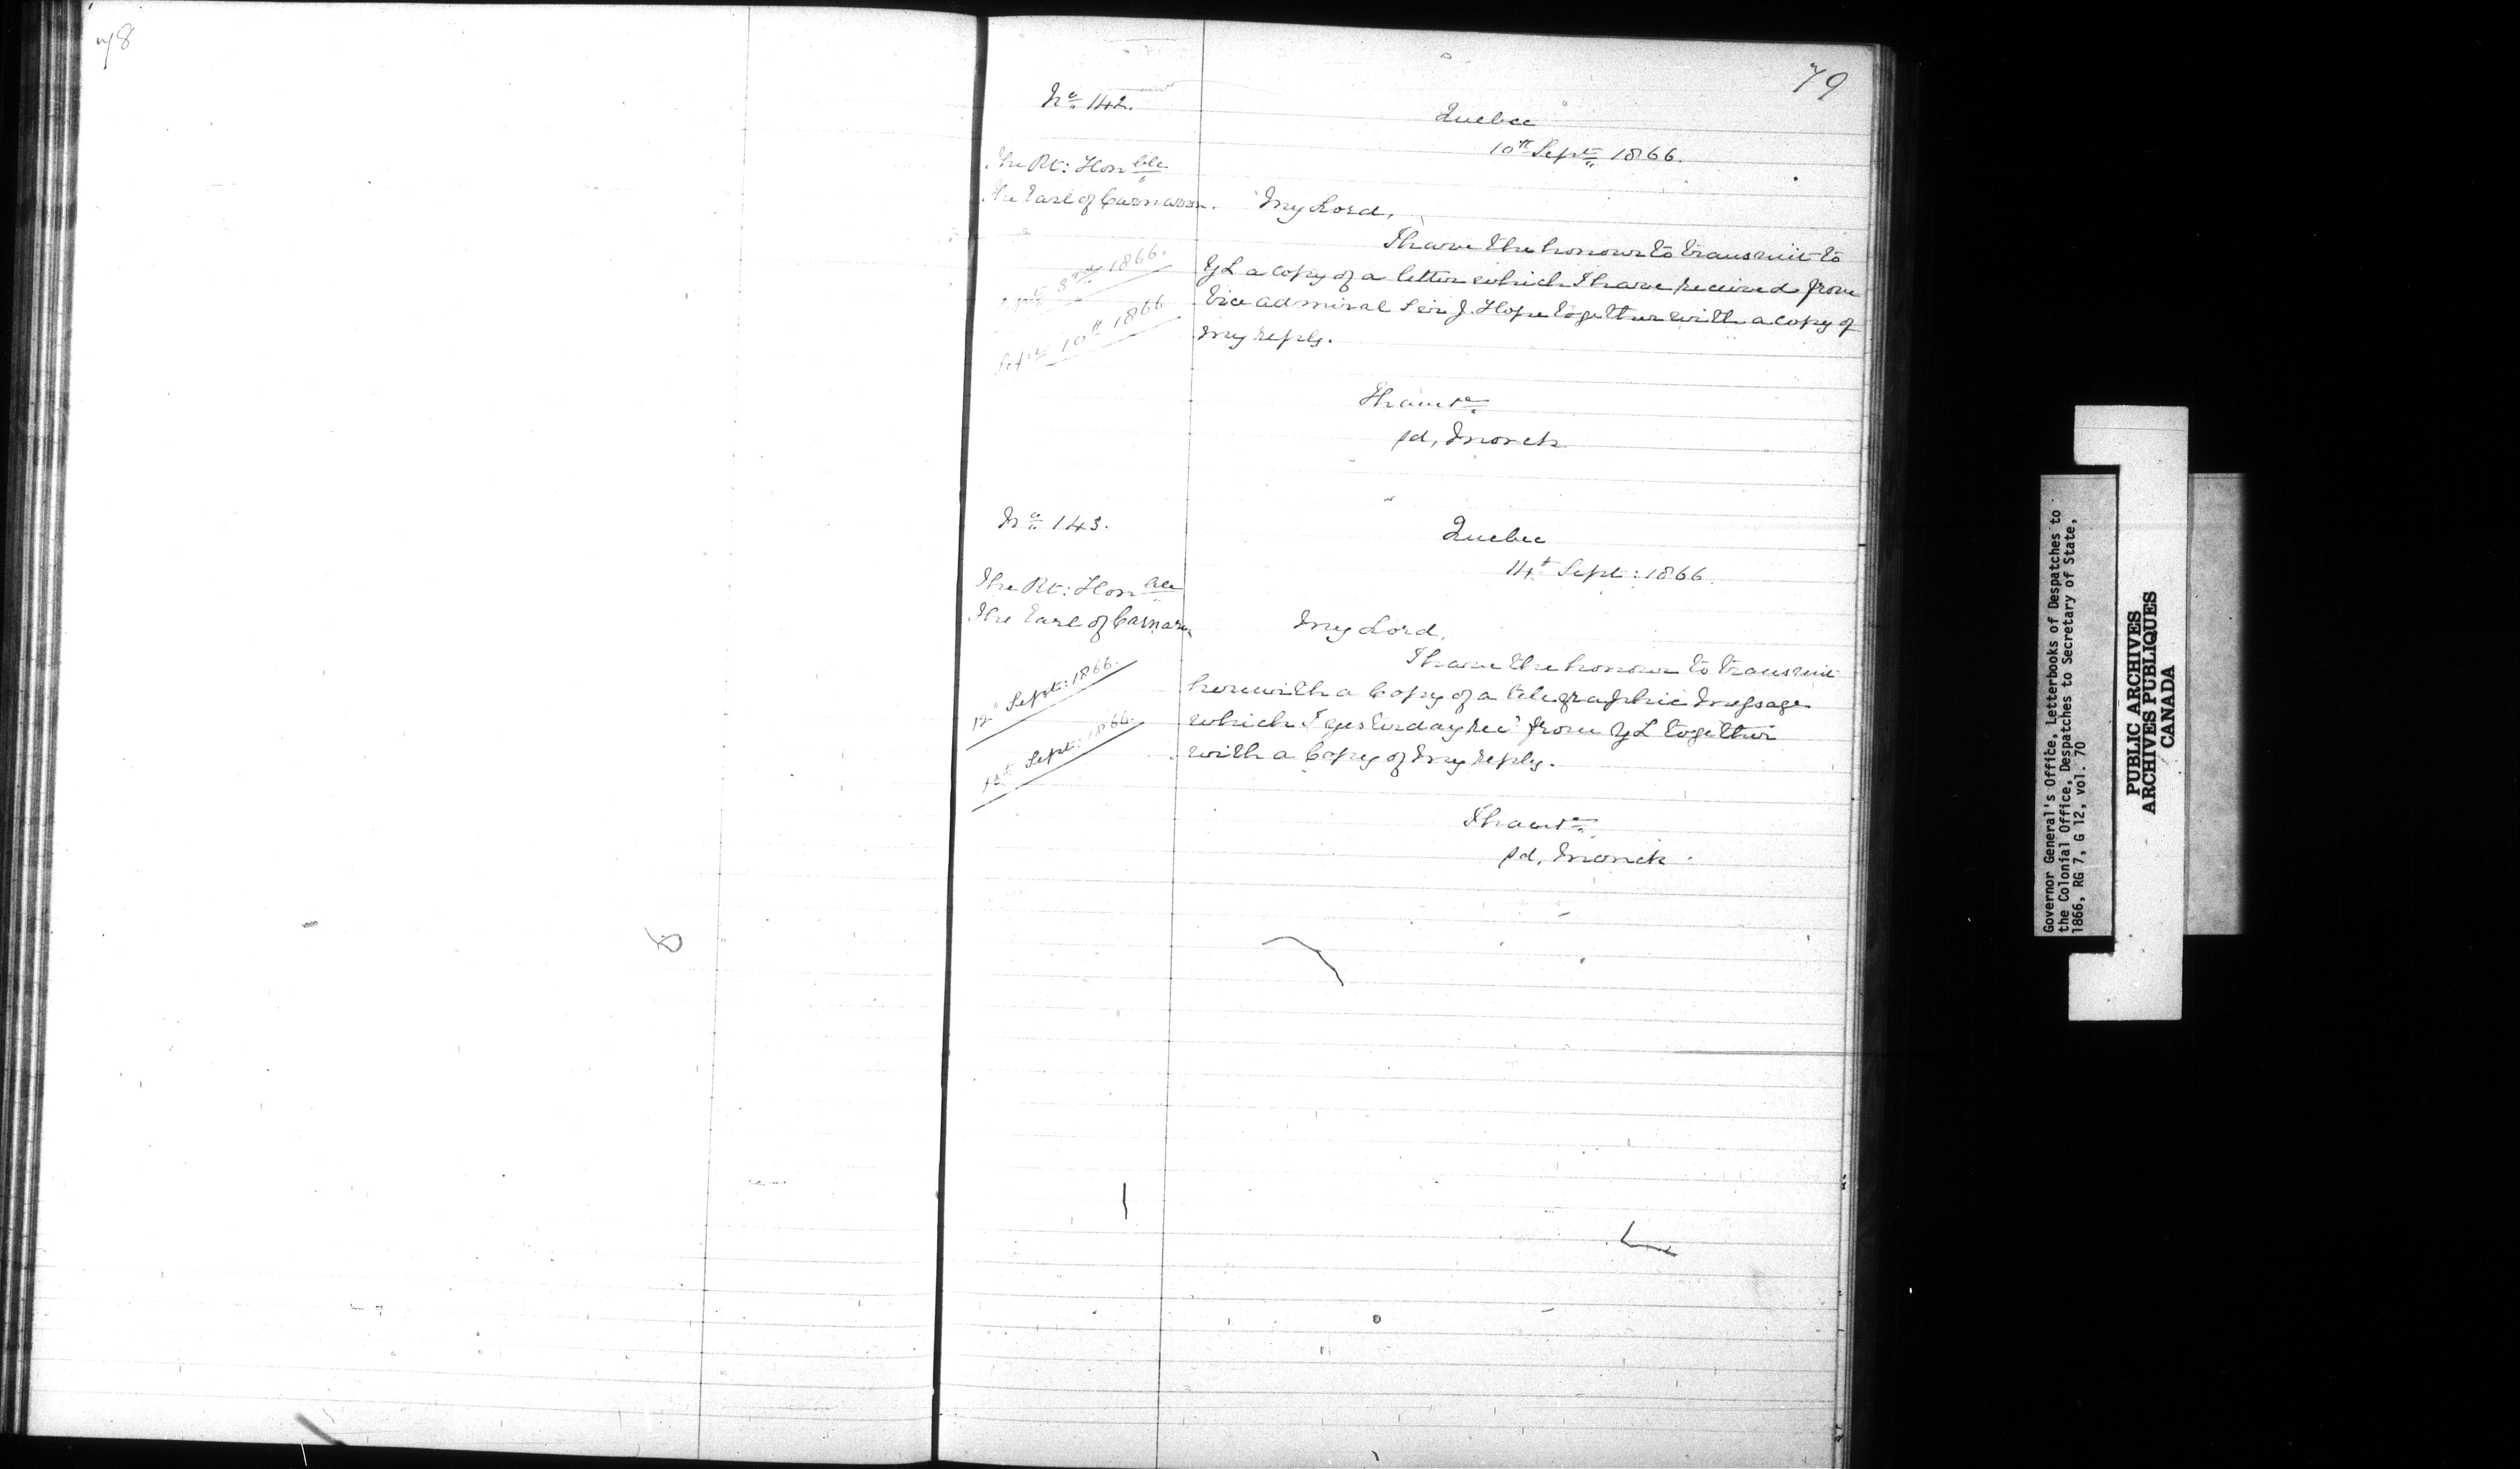 78
79
No 142.
Quebec
10th Sept 1866.
The Rt: Honble
The Earl of Carnarvon.
My Lord,
I have the honour to transmit to
YL a copy of a letter which I have received from
Vice admiral Sir J. Hope together with a copy of
my reply.
Sept 3rd 1866.
Sept 10th 1866
I have &c
sd, Monck
No 143.
Quebec
14th Sept: 1866.
The Rt: Honble
The Earl of Carnarvon
My Lord,
I have the honour to transmit
herewith a Copy of a telegraphic Message
which I yesterday recd from YL together
with a Copy of my reply.
Sept: 1866.
Sept: 1866.
I have &c
sd, Monck.
Governor General's Office, Letterbooks of Despatches to
the Colonial Office, Despatches to Secretary of State,
1866, RG 7, G 12, vol. 70
PUBLIC ARCHIVES
ARCHIVES PUBLIQUES
CANADA